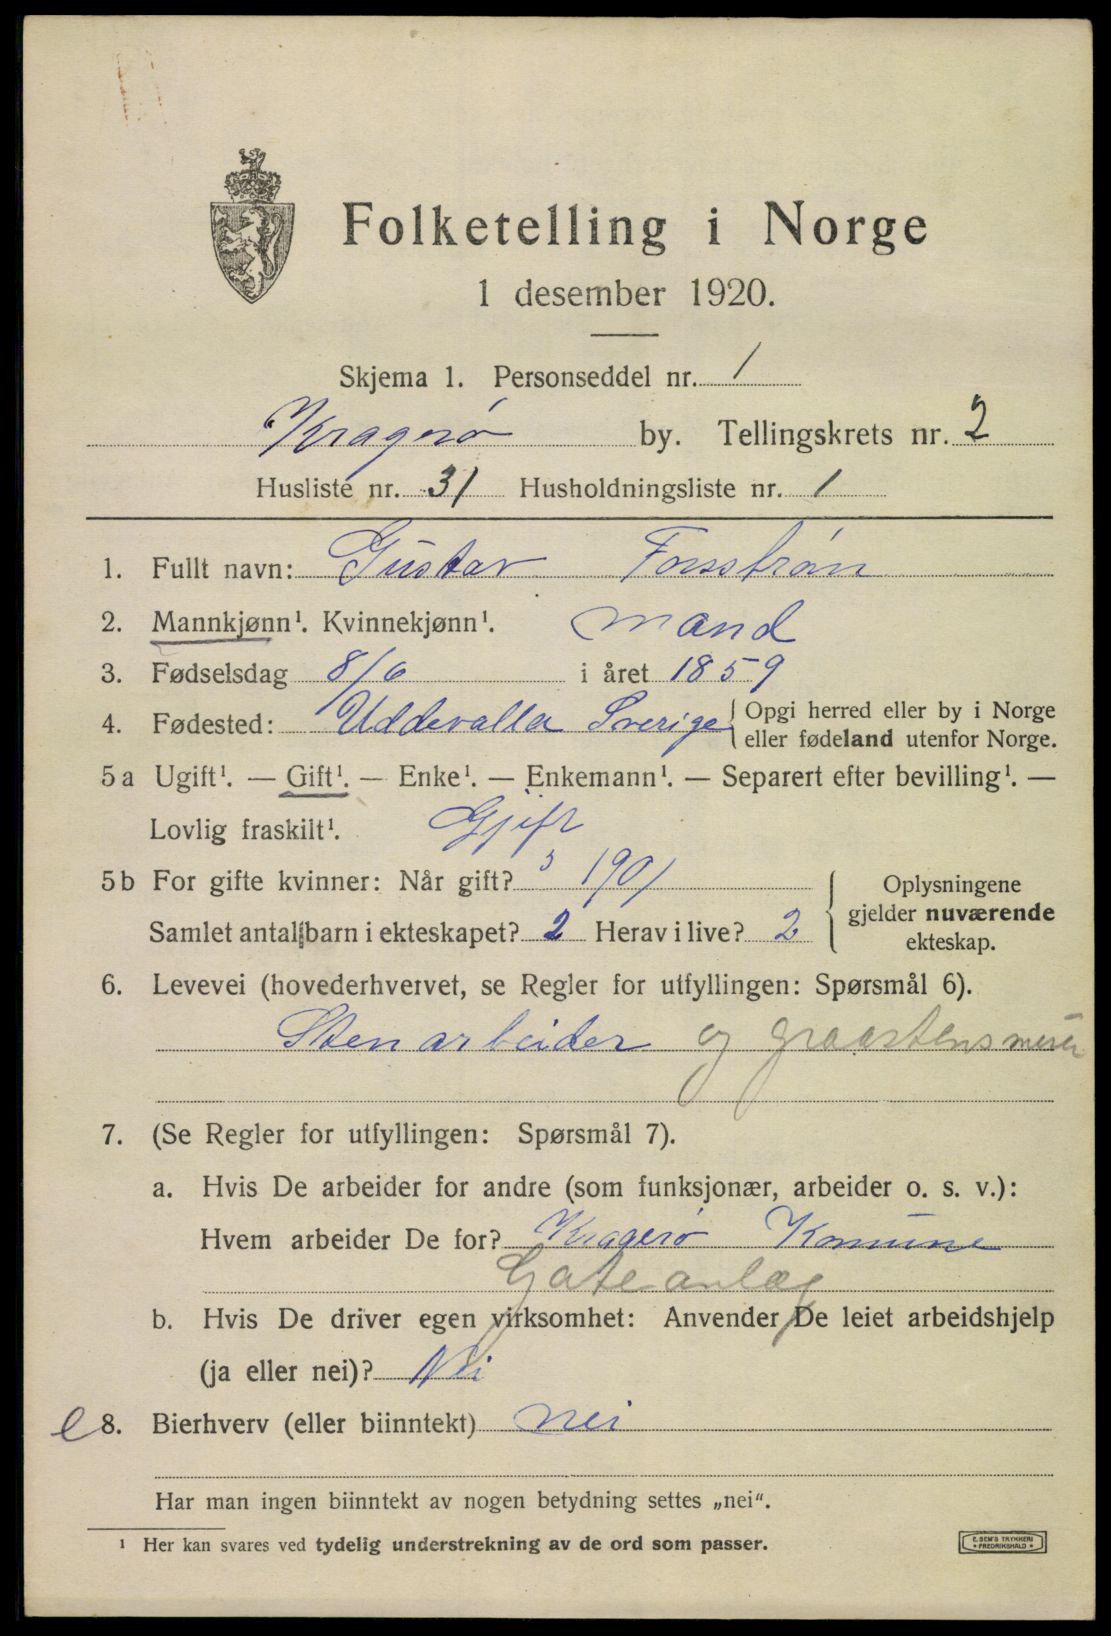 Folketelling i Norge
1 desember 1920.
Skjema 1. Personseddel nr. 1
Kragerø by. Tellingskrets nr. 2
Husliste nr. 31 Husholdningsliste nr. 1
1. Fullt navn: Gustav Forsstrøn
2. Mannkjønn¹. Kvinnekjønn¹. mand
3. Fødselsdag 8/6 i året 1859
4. Fødested: Uddevalla Sverige { Opgi herred eller by i Norge
eller fødeland utenfor Norge.
5a Ugift¹. — Gift¹. — Enke¹. — Enkemann¹. — Separert efter bevilling¹. —
Lovlig fraskilt¹. Gjift
5b For gifte kvinner: Når gift? 1901
Samlet antal barn i ekteskapet? 2 Herav i live? 2
{ Oplysningene
gjelder nuværende
ekteskap.
6. Levevei (hovederhvervet, se Regler for utfyllingen: Spørsmål 6).
Stenarbeider og graastensmurer
7. (Se Regler for utfyllingen: Spørsmål 7).
a. Hvis De arbeider for andre (som funksjonær, arbeider o. s. v.):
Hvem arbeider De for? Kragerø Komune
Gateanlæg
b. Hvis De driver egen virksomhet: Anvender De leiet arbeidshjelp
(ja eller nei)? Nei
8. Bierhverv (eller biinntekt) nei
Har man ingen biinntekt av nogen betydning settes „nei“.
¹ Her kan svares ved tydelig understrekning av de ord som passer.
E. SEM'S TRYKKERI
• FREDRIKSHALD •